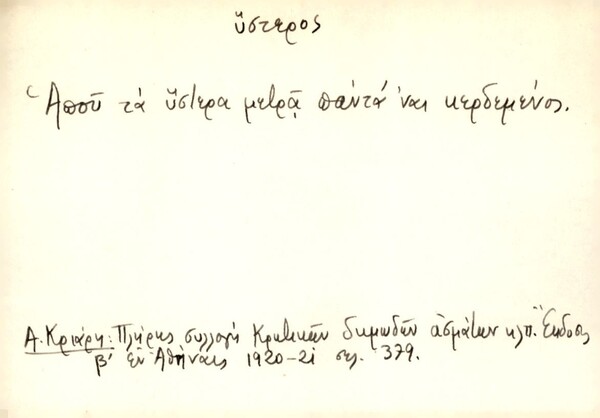 ὕστερος
Ἁποῦ τὰ ὕστερα μετρᾷ πάντά 'ναι κερδεμένος.
Α. Κριάρη: Πλήρης συλλογὴ Κρητικῶν δημωδῶν ἀσμάτων κλπ. Ἔκδοσις
β' ἐν Ἀθήναις 1920-21 σελ. 379.